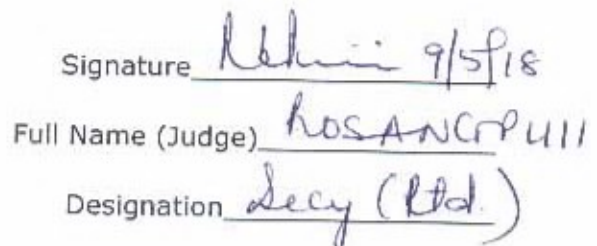 Signature 9/5/18
Full Name (Judge)
Designation Secy (Rtd.)